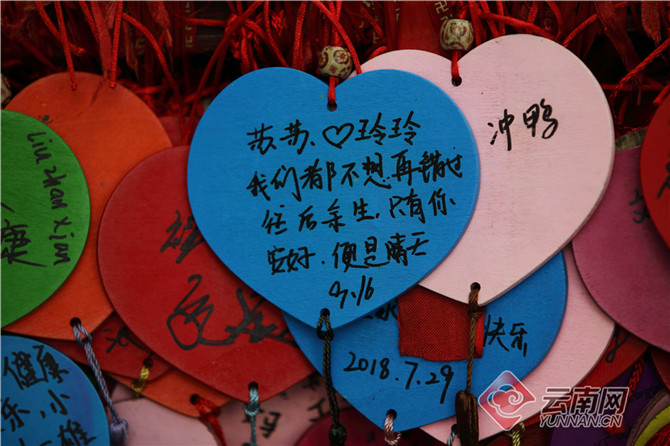 苏苏、♡玲玲
我们都不想再错过
往后余生,只有你
安好.便是晴天
9.16
冲鸭
Liu zhan xian
康
快乐
2018.7.29
健康
乐,小
雄
云南网
YUNNAN.CN